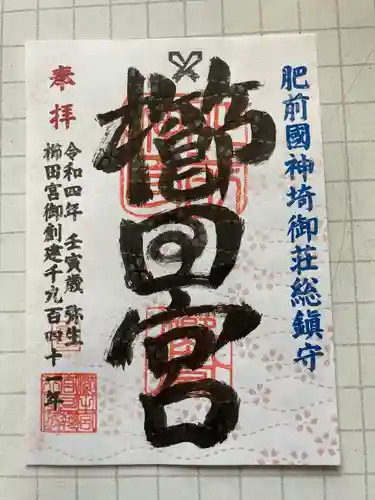 肥前國神埼御荘総鎮守
櫛田宮
奉拝
令和四年 壬寅歳 弥生
櫛田宮御創建千九百四十一年